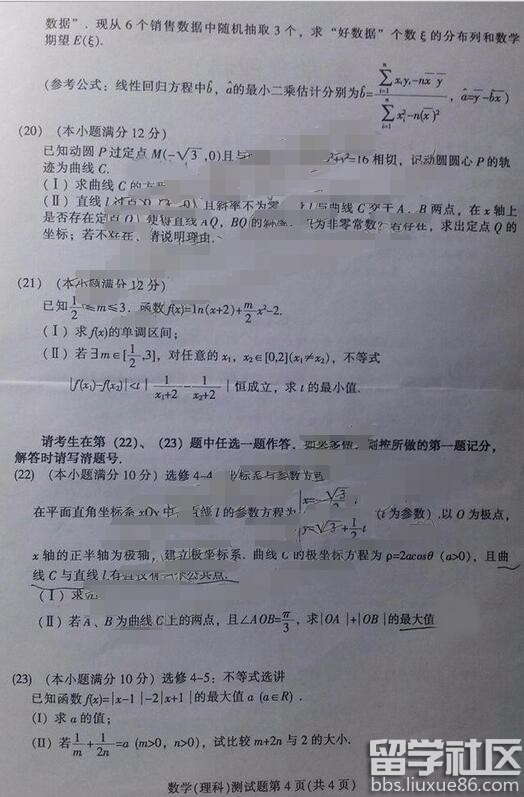 数据”．现从6个销售数据中随机抽取3个，求“好数据”个数ξ的分布列和数学
期望E(ξ).
(参考公式：线性回归方程中b̂，â的最小二乘估计分别为b̂=(∑_{i=1}^{n} x_i y_i−n x̄ ȳ)/(∑_{i=1}^{n} x_i²−n(x̄)²)，â=ȳ−b̂x̄)
(20)（本小题满分12分）
已知动圆P过定点M(−√3,0)且与 y²=16相切，记动圆圆心P的轨
迹为曲线C.
(Ⅰ)求曲线C的方
(Ⅱ)直线l 且斜率不为零 与曲线C交于A、B两点，在x轴上
是否存在定点Q，使得直线AQ，BQ的斜 为非零常数？若存在，求出定点Q的
坐标；若不存在、请说明理由.
(21)（本小题满分12分）
已知1/2≤m≤3．函数f(x)=ln(x+2)+m/2 x²−2.
(Ⅰ)求f(x)的单调区间；
(Ⅱ)若∃m∈[1/2,3]，对任意的x₁，x₂∈[0,2](x₁≠x₂)，不等式
|f(x₁)−f(x₂)|<t|1/(x₁+2)−1/(x₂+2)|恒成立，求t的最小值.
请考生在第（22）、（23）题中任选一题作答．如果多做，则按所做的第一题记分，
解答时请写清题号.
(22)（本小题满分10分）选修4-4 坐标系与参数方程
在平面直角坐标系xOy中，直线l的参数方程为 (t为参数)．以O为极点，
x轴的正半轴为极轴，建立极坐标系．曲线C的极坐标方程为ρ=2acosθ (a>0)，且曲
线C与直线l有且仅有 公共点.
(Ⅰ)求
(Ⅱ)若A、B为曲线C上的两点，且∠AOB=π/3，求|OA|+|OB|的最大值
(23)（本小题满分10分）选修4-5：不等式选讲
已知函数f(x)=|x−1|−2|x+1|的最大值a (a∈R).
(Ⅰ)求a的值；
(Ⅱ)若1/m+1/2n=a (m>0，n>0)，试比较m+2n与2的大小.
数学(理科)测试题第4页(共4页)
留学社区
bbs.liuxue86.com